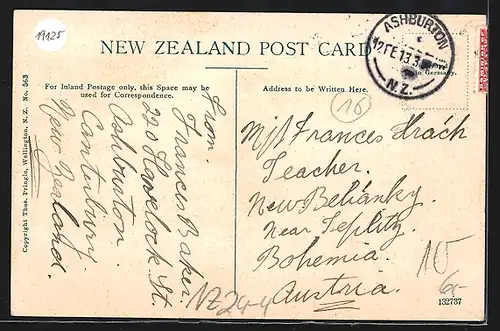 19125
NEW ZEALAND POST CARD
ASHBURTON
12 FE 13 3
N.Z.
in Germany.
For Inland Postage only, this Space may be
used for Correspondence.
Address to be Written Here.
Copyright Thos. Pringle, Wellington, N. Z. No. 563
From.
Frances Baker.
240 Havelock St.
Ashburton.
Canterbury
New Zealand.
16
M/s Frances Hrách
Teacher.
New Behánky.
Near Teplitz.
Bohemia.
Austria.
NZ 244
10
6-
132737